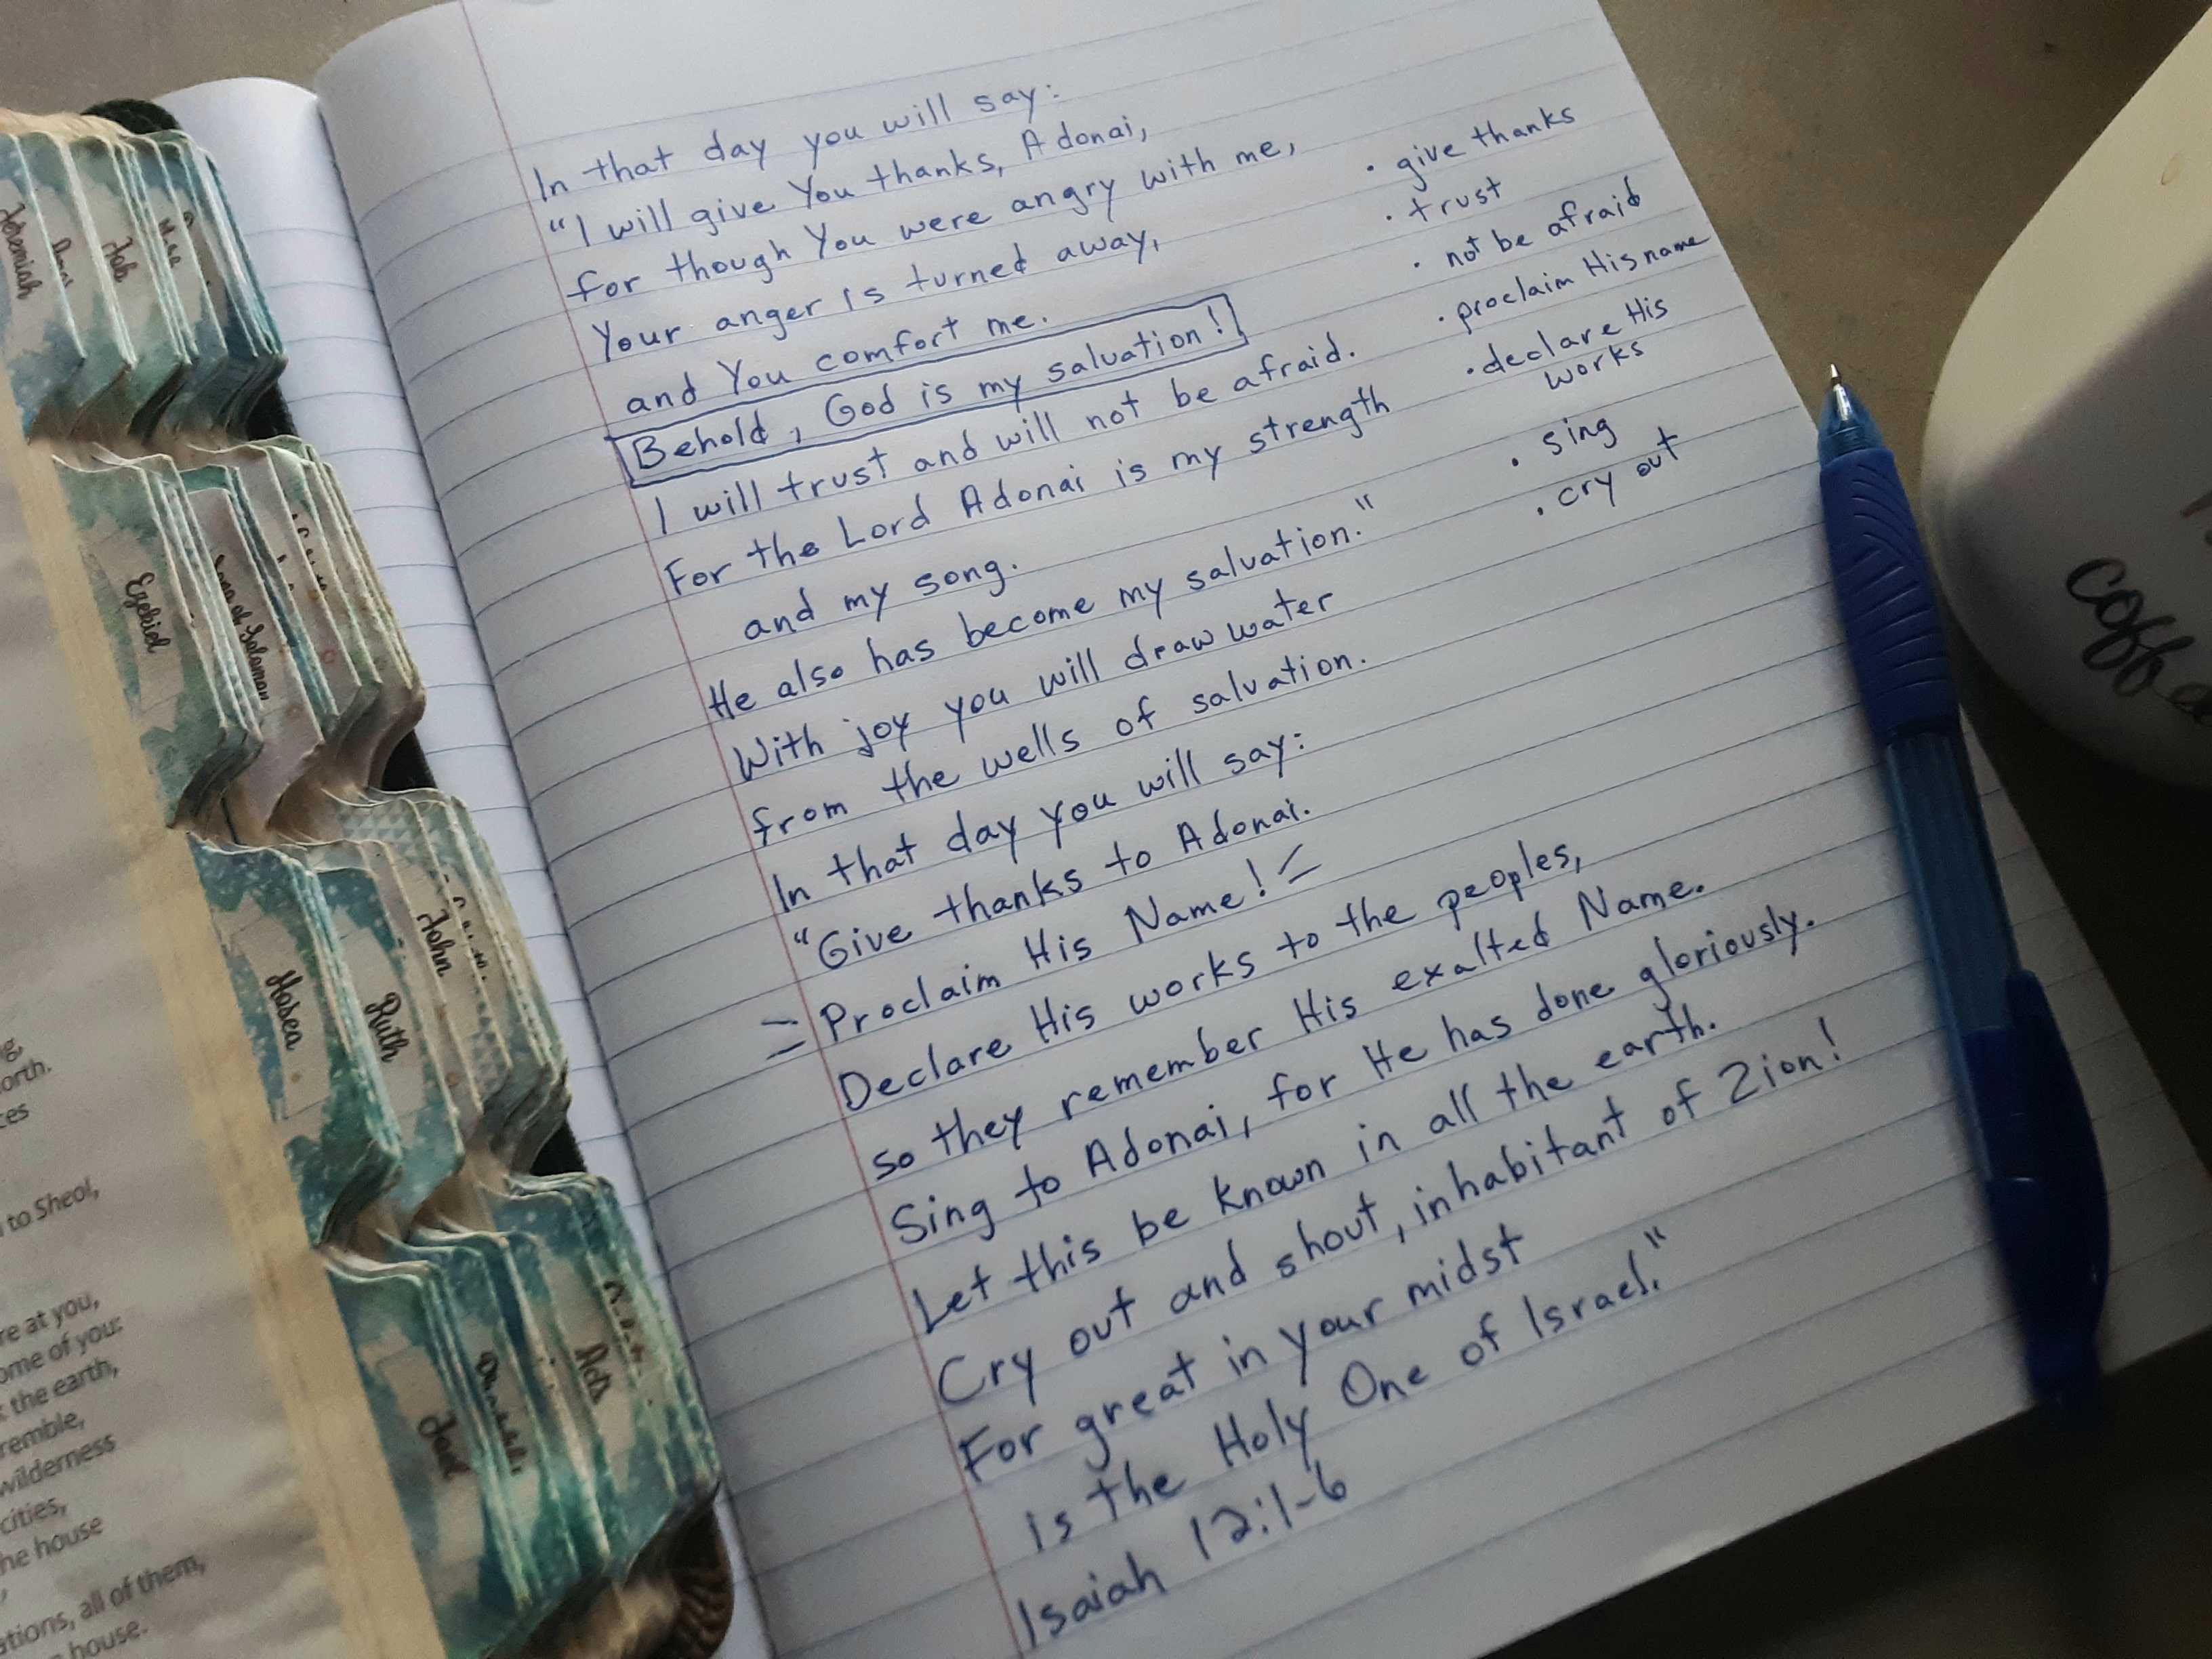 In that day you will say:
"I will give You thanks, Adonai,
for though You were angry with me,
Your anger is turned away,
and You comfort me.
Behold, God is my salvation!
I will trust and will not be afraid.
For the Lord Adonai is my strength
and my song.
He also has become my salvation."
With joy you will draw water
from the wells of salvation.
In that day you will say:
"Give thanks to Adonai.
= Proclaim His Name! =
Declare His works to the peoples,
so they remember His exalted Name.
Sing to Adonai, for He has done gloriously.
Let this be known in all the earth.
Cry out and shout, inhabitant of Zion!
For great in your midst
is the Holy One of Israel."
Isaiah 12:1-6
• give thanks
• trust
• not be afraid
• proclaim His name
• declare His
works
• sing
• cry out
Job
Ezekiel
Song of Solomon
Hosea
Ruth
John
Joel
Acts
to Sheol,
at you,
of you:
the earth,
wilderness
cities,
house
all of them,
house.